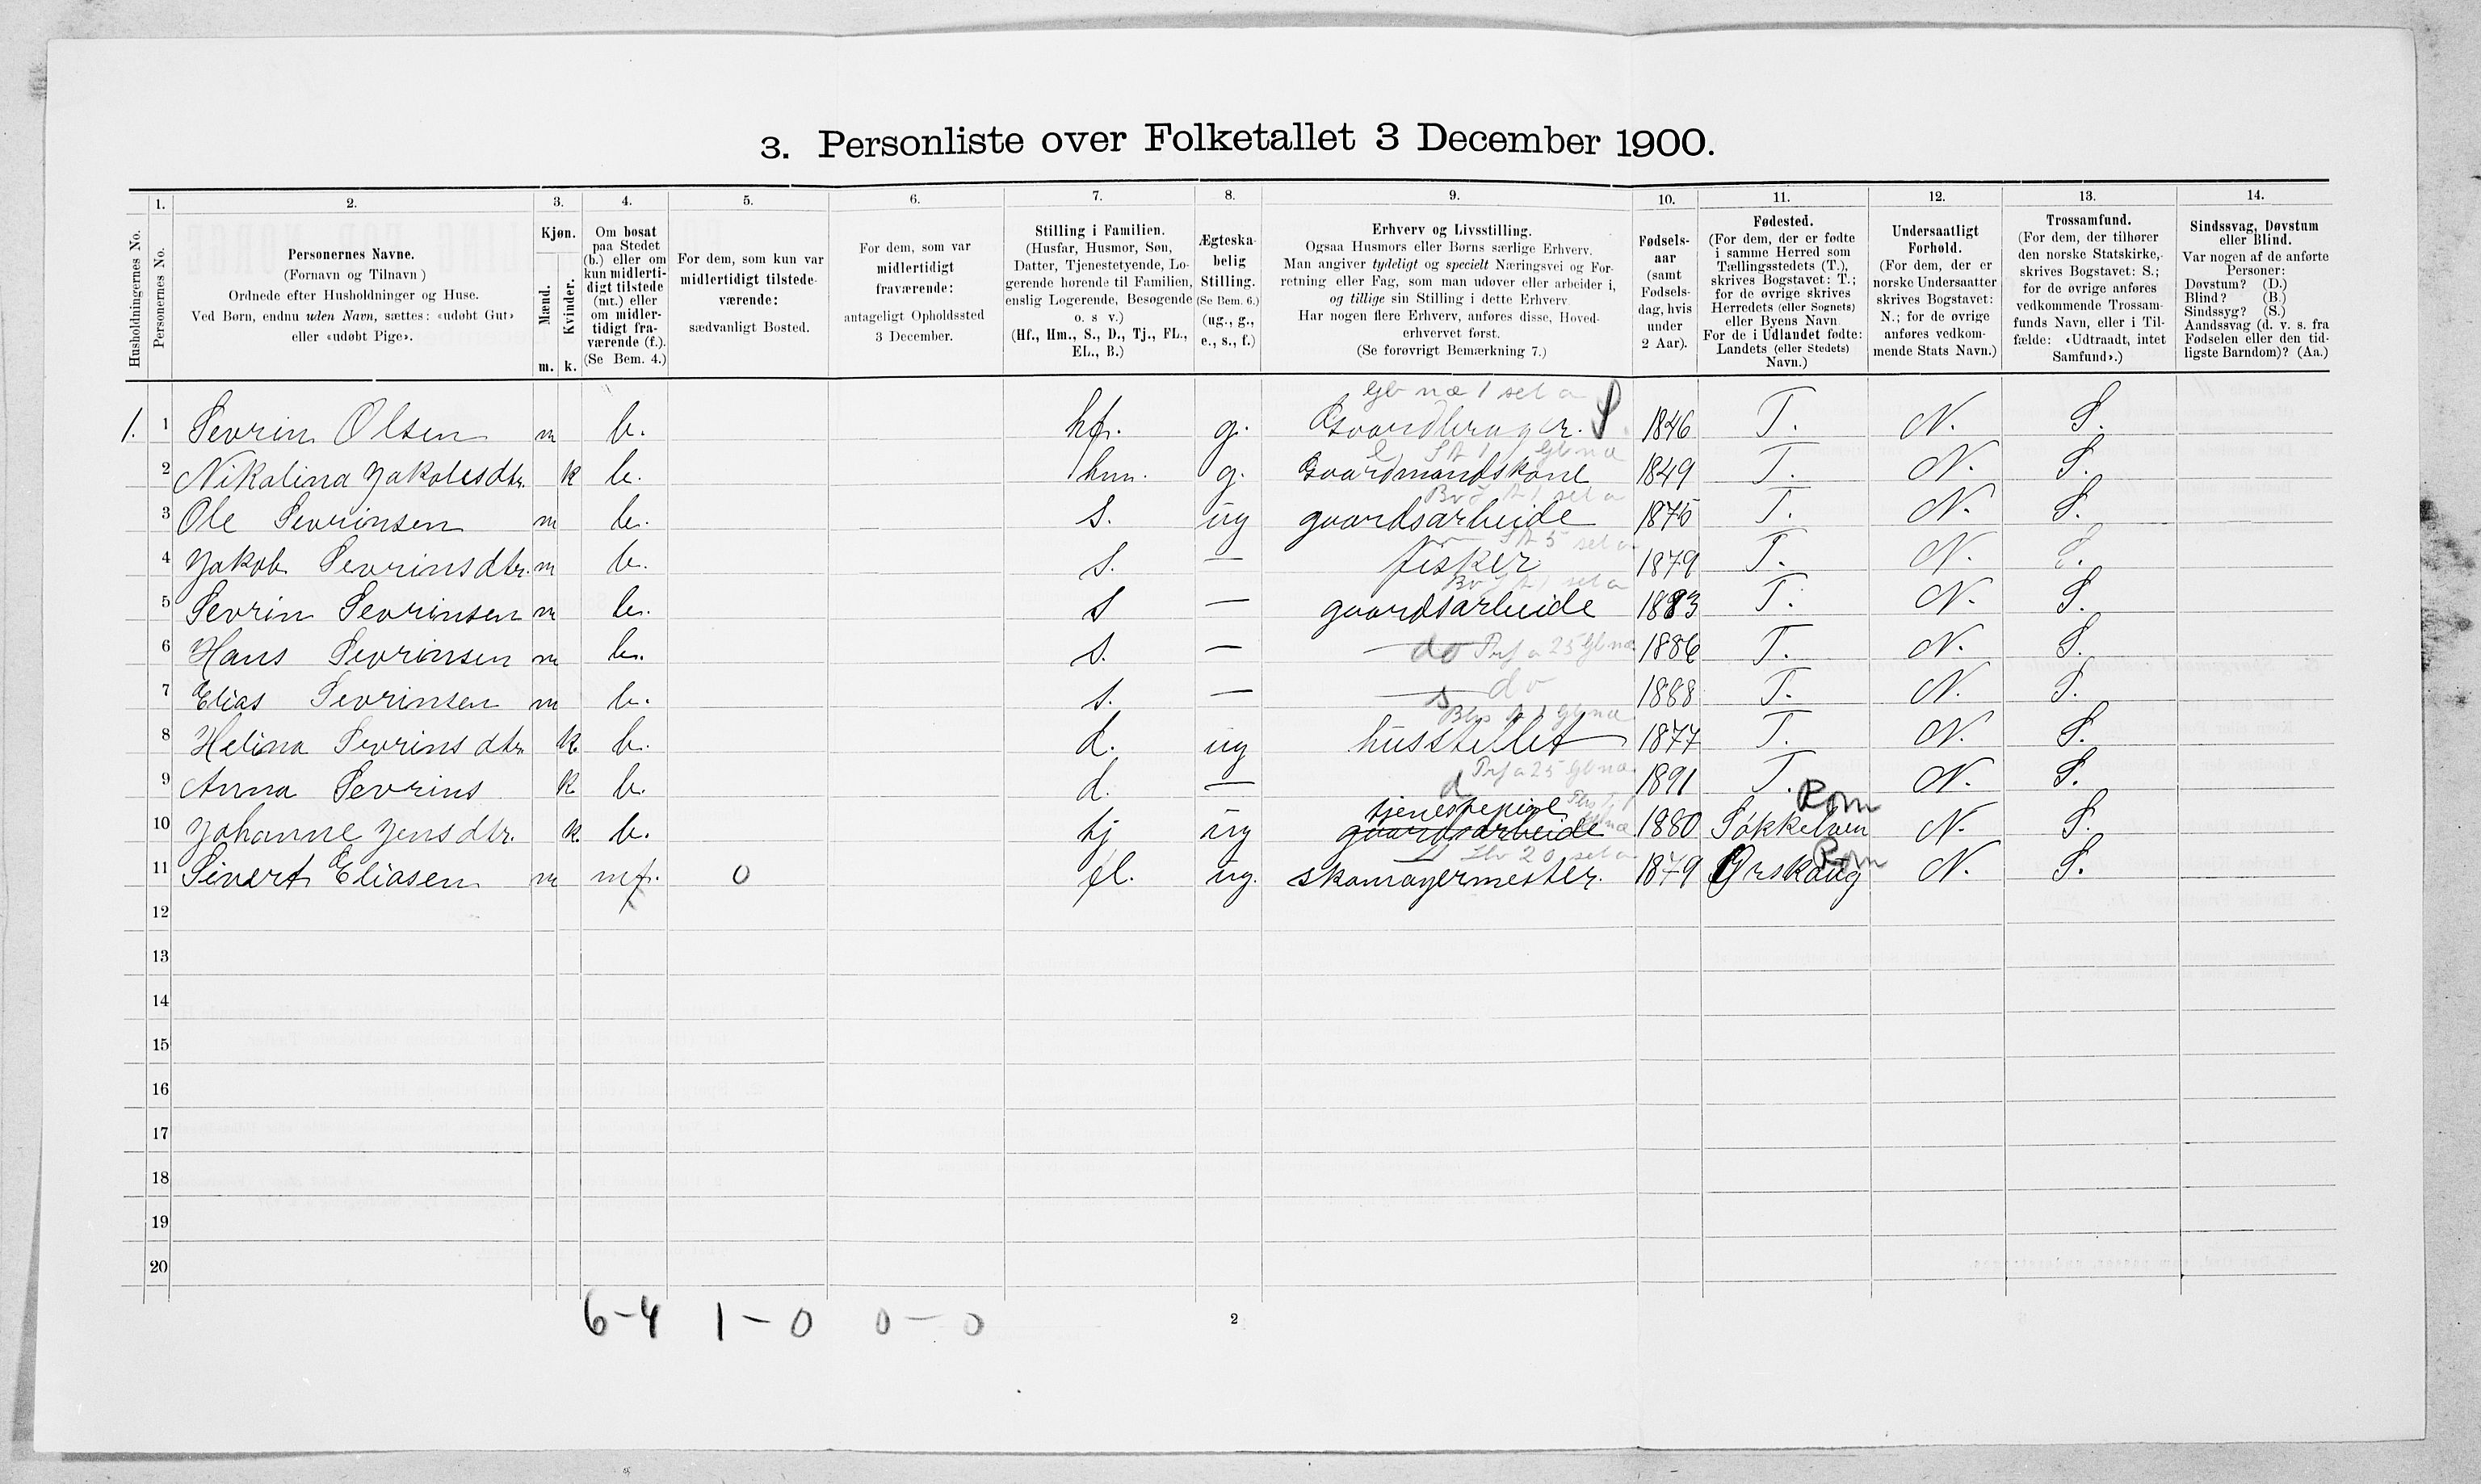 3. Personliste over Folketallet 3 December 1900.
1. 2. 3. 4. 5. 6. 7. 8. 9. 10. 11. 12. 13. 14.
Husholdningernes No.
Personernes No.
Personernes Navne.
(Fornavn og Tilnavn)
Ordnede efter Husholdninger og Huse.
Ved Børn, endnu uden Navn, sættes: «udøbt Gut»
eller «udøbt Pige».
Kjøn.
Mænd.
Kvinder.
m. k.
Om bosat
paa Stedet
(b.) eller om
kun midlerti-
digt tilstede
(mt.) eller
om midler-
tidigt fra-
værende (f.).
(Se Bem. 4.)
For dem, som kun var
midlertidigt tilstede-
værende:
sædvanligt Bosted.
For dem, som var
midlertidigt
fraværende:
antageligt Opholdssted
3 December.
Stilling i Familien.
(Husfar, Husmor, Søn,
Datter, Tjenestetyende, Lo-
gerende hørende til Familien,
enslig Logerende, Besøgende
o. s v.)
(Hf., Hm., S., D., Tj., FL.,
EL., B.)
Ægteska-
belig
Stilling.
(Se Bem. 6.)
(ug., g.,
e., s., f.)
Erhverv og Livsstilling.
Ogsaa Husmors eller Børns særlige Erhverv.
Man angiver tydeligt og specielt Næringsvei og For-
retning eller Fag, som man udøver eller arbeider i,
og tillige sin Stilling i dette Erhverv.
Har nogen flere Erhverv, anføres disse, Hoved-
erhvervet først.
(Se forøvrigt Bemærkning 7.)
Fødsels-
aar
(samt
Fødsels-
dag, hvis
under
2 Aar).
Fødested.
(For dem, der er fødte
i samme Herred som
Tællingsstedets (T.),
skrives Bogstavet: T.;
for de øvrige skrives
Herredets (eller Sognets)
eller Byens Navn.
For de i Udlandet fødte:
Landets (eller Stedets)
Navn.)
Undersaatligt
Forhold.
(For dem, der er
norske Undersaatter
skrives Bogstavet:
N.; for de øvrige
anføres vedkom-
mende Stats Navn.)
Trossamfund.
(For dem, der tilhører
den norske Statskirke,
skrives Bogstavet: S.;
for de øvrige anføres
vedkommende Trossam-
funds Navn, eller i Til-
fælde: «Udtraadt, intet
Samfund».)
Sindssvag, Døvstum
eller Blind.
Var nogen af de anførte
Personer:
Døvstum? (D.)
Blind? (B.)
Sindssyg? (S.)
Aandssvag (d. v. s. fra
Fødselen eller den tid-
ligste Barndom)? (Aa.)
Gb næ 1 sel a
1. 1 Sevrin Olsen m b. hf. g. Gaardbruger. 1846 T. N. S.
2 Nikolina Jakobsdtr. k b. hm. g. Gaardmandskone 1849 T. N. S.
3 Ole Sevrinsen m b. s. ug gaardsarbeide 1875 T. N. S.
4 Jakob Sevrinsdtr. m b. s. — fisker 1879 T. N. S.
5 Sevrin Sevrinsen m b. s — gaardsarbeide 1883 T. N. S.
6 Hans Sevrinsen m b. s. — do 1886 T. N. S.
7 Elias Sevrinsen m b. s. — s do 1888 T. N. S.
8 Helina Sevrinsdtr k. b. d. ug husstellet 1877 T. N. S.
9 Anna Sevrins k. b. d. — d 1891 T. N. S.
tjenestepige Rom
10 Johanne Jensdtr. k. b. tj ug gaardsarbeide 1880 Søkkelven N. S.
Rom
11 Sivert Eliasen m mt. 0 fl. ug. skomagermester. 1879 Ørskaug N. S.
12
13
14
15
16
17
18
19
20
6-4 1-0 0-0
2